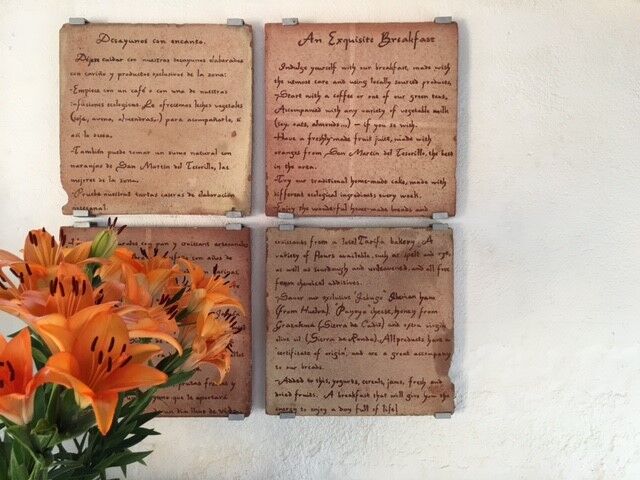 Desayunos con encanto.
Déjese cuidar con nuestros desayunos elaborados
con cariño y productos exclusivos de la zona:
-Empiece con un café o con una de nuestras
infusiones ecologicas. Le ofrecemos leches vegetales
(soja, avena, almendras,.) para acompañarlo, si
asi lo desea.
-También puede tomar un zumo natural con
naranjas de San Martin del Tesorillo, las
mejores de la zona.
-Pruebe nuestras tartas caseras de elaboración
artesanal.
con pan y croissant artesanales
con años de
frutas y
que le aportará
un dia lleno de vida
An Exquisite Breakfast
Indulge yourself with our breakfast, made with
the utmost care and using locally sourced products.
-Start with a coffee or one of our green teas.
Accompanied with any variety of vegetable milk
(soy, oats, almonds...) – if you so wish.
-Have a freshly-made fruit juice, made with
oranges from San Martin del Tesorillo, the best
in the area.
-Try our traditional home-made cake, made with
different ecological ingredients every week.
-Enjoy the wonderful home-made breads and
croissants from a local Tarifa bakery. A
variety of flours available, such as spelt and rye,
as well as sourdough and unleavened, and all free
from chemical additives.
-Savor our exclusive "Jabugo" Iberian ham
(from Huelva), "Payoyo" cheese, honey from
Grazalema (Sierra de Cadiz) and extra virgin
olive oil (Sierra de Ronda). All products have a
'certificate of origin', and are a great accompany
to our breads.
-Added to this, yogurts, cereals, jams, fresh and
dried fruits. A breakfast that will give you the
energy to enjoy a day full of life!